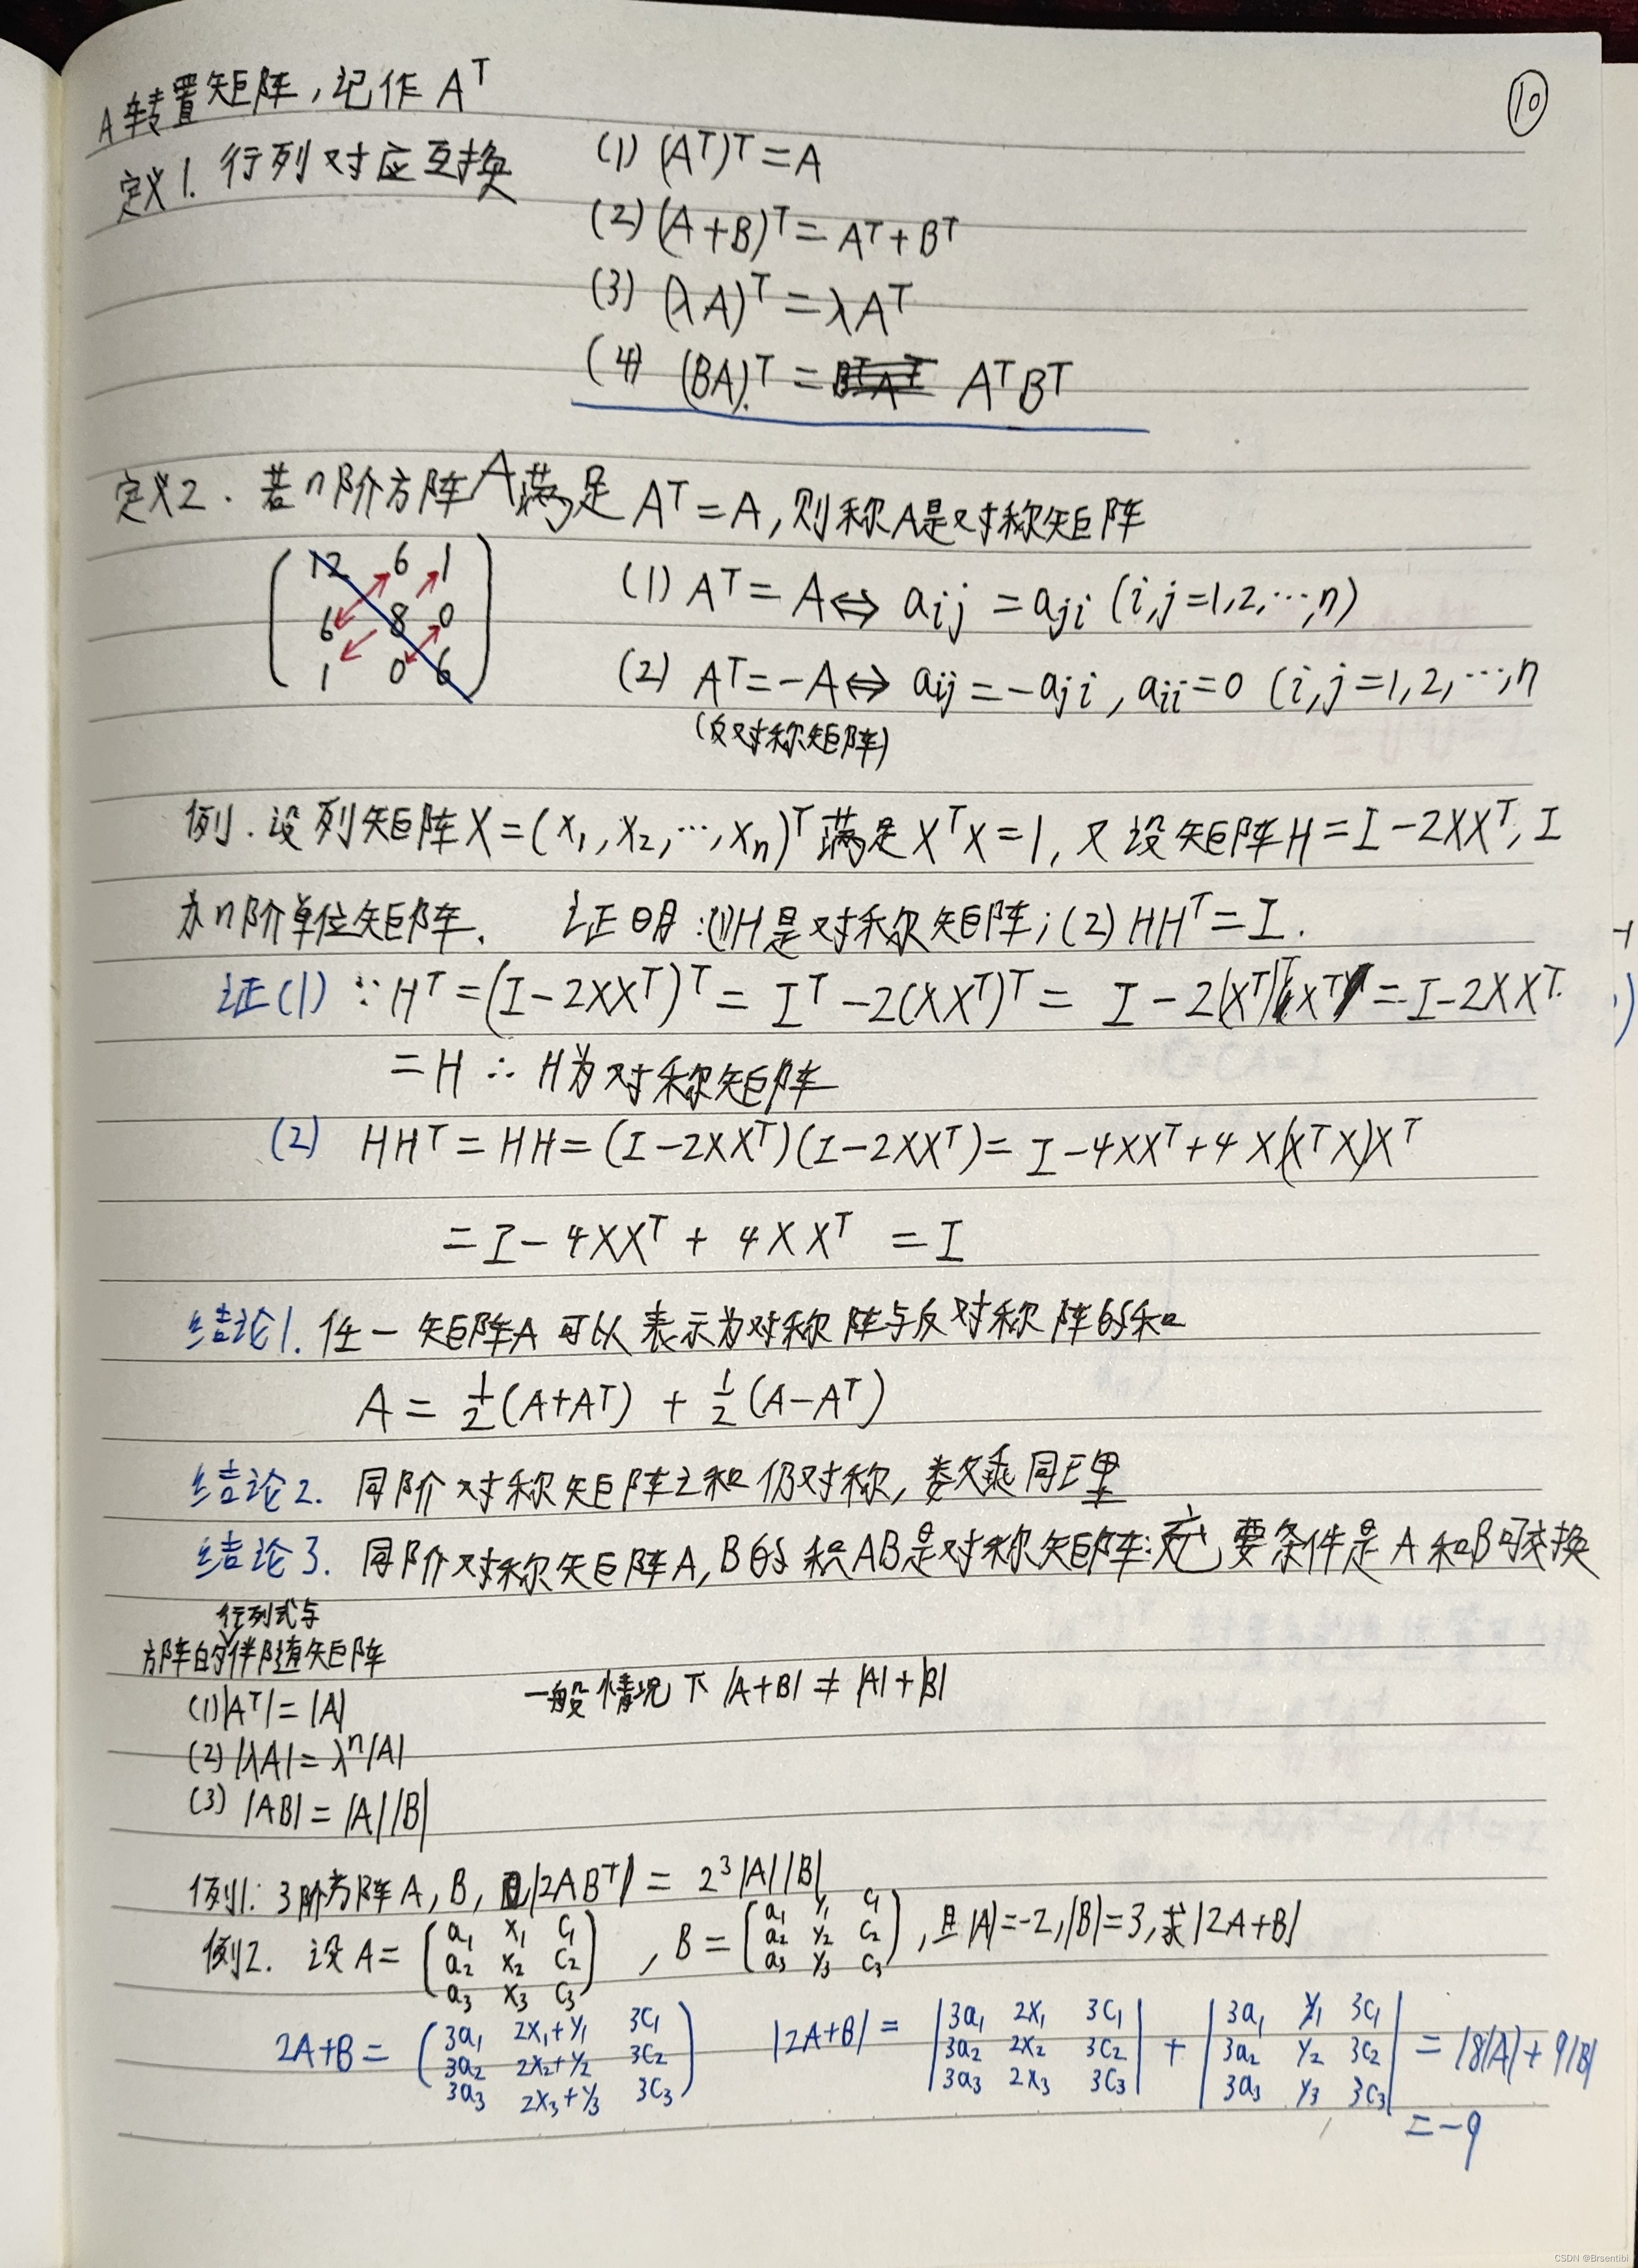 ⑩
A转置矩阵,记作 Aᵀ
定义1. 行列对应互换
(1) (Aᵀ)ᵀ = A
(2) (A+B)ᵀ = Aᵀ + Bᵀ
(3) (λA)ᵀ = λAᵀ
(4) (BA)ᵀ = AᵀBᵀ
定义2. 若n阶方阵A满足 Aᵀ = A, 则称A是对称矩阵
12 6 1
6 8 0
1 0 6
(1) Aᵀ = A ⇔ aij = aji (i,j=1,2,…,n)
(2) Aᵀ = -A ⇔ aij = -aji , aii = 0 (i,j=1,2,…,n
(反对称矩阵)
例. 设列矩阵X = (x₁, x₂, …, xn)ᵀ 满足 XᵀX = 1, 又设矩阵H = I - 2XXᵀ, I
为n阶单位矩阵. 证明:(1)H是对称矩阵;(2) HHᵀ = I.
证(1) ∵ Hᵀ = (I - 2XXᵀ)ᵀ = Iᵀ - 2(XXᵀ)ᵀ = I - 2(Xᵀ)ᵀXᵀ = I - 2XXᵀ
= H ∴ H为对称矩阵
(2) HHᵀ = HH = (I - 2XXᵀ)(I - 2XXᵀ) = I - 4XXᵀ + 4X(XᵀX)Xᵀ
= I - 4XXᵀ + 4XXᵀ = I
结论1. 任一矩阵A可以表示为对称阵与反对称阵的和
A = ½(A+Aᵀ) + ½(A-Aᵀ)
结论2. 同阶对称矩阵之和仍对称, 数乘同理
结论3. 同阶对称矩阵A,B的积AB是对称矩阵:充要条件是A和B可交换
行列式与
方阵的伴随矩阵
(1) |Aᵀ| = |A|
一般情况下 |A+B| ≠ |A|+|B|
(2) |λA| = λⁿ|A|
(3) |AB| = |A||B|
例1: 3阶方阵A, B, 则|2ABᵀ| = 2³|A||B|
例2. 设A = (a₁ x₁ c₁
a₂ x₂ c₂
a₃ x₃ c₃) , B = (a₁ y₁ c₁
a₂ y₂ c₂
a₃ y₃ c₃) , 且|A|=-2, |B|=3, 求|2A+B|
2A+B = (3a₁ 2x₁+y₁ 3c₁
3a₂ 2x₂+y₂ 3c₂
3a₃ 2x₃+y₃ 3c₃)
|2A+B| = |3a₁ 2x₁ 3c₁
3a₂ 2x₂ 3c₂
3a₃ 2x₃ 3c₃| + |3a₁ y₁ 3c₁
3a₂ y₂ 3c₂
3a₃ y₃ 3c₃| = 18|A| + 9|B|
= -9
CSDN @Brsentibi